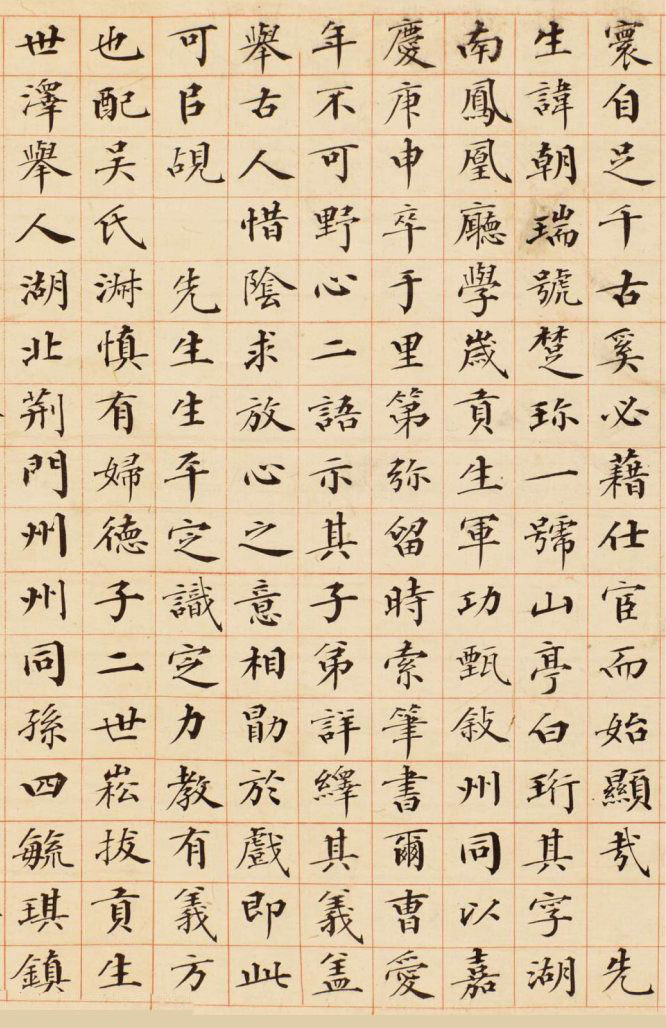 寰自足千古奚必藉仕宦而始顯㢤　先
生諱朝瑞號楚珎一號山亭白珩其字湖
南鳳凰廳學歲貢生軍功甄敍州同以嘉
慶庚申卒于里第弥留時索筆書爾曹愛
年不可野心二語示其子弟詳繹其義盖
舉古人惜陰求放心之意相勖於戲即此
可㠯覘　先生生平定識定力教有義方
也配吴氏淋慎有婦德子二世崧拔貢生
世澤舉人湖北荆門州州同孫四毓琪鎮